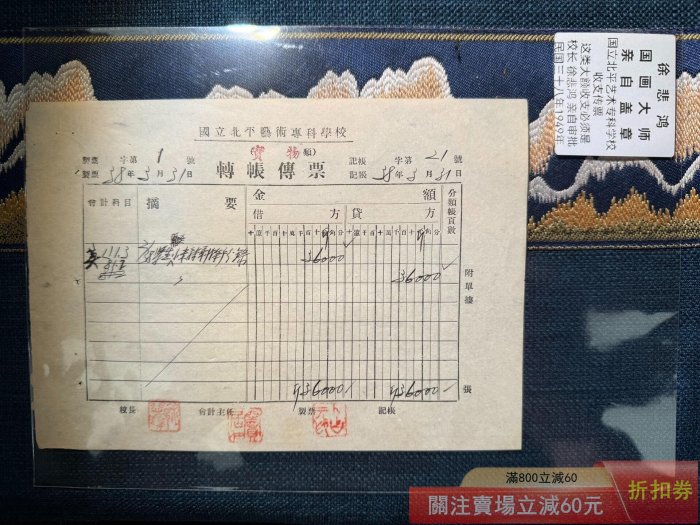 國立北平藝術專科學校
(實物類)
製票 字第 1 號
轉帳傳票
記帳 字第 21 號
製票 38年3月31日
記帳 38年3月31日
會計科目
摘要
金額
借方
貸方
分類帳頁數
千億千百十萬千百十元角分
千億千百十萬千百十元角分
36000
36000
附單據
張
36000
36000
校長
會計主任
製票
記帳
徐悲鸿
国画大师
亲自盖章
国立北平艺术专科学校
收支传票
这类大额收支必须是
校长徐悲鸿亲自审批
民国三十八年1949年
滿800立減60
關注賣場立減60元
折扣券